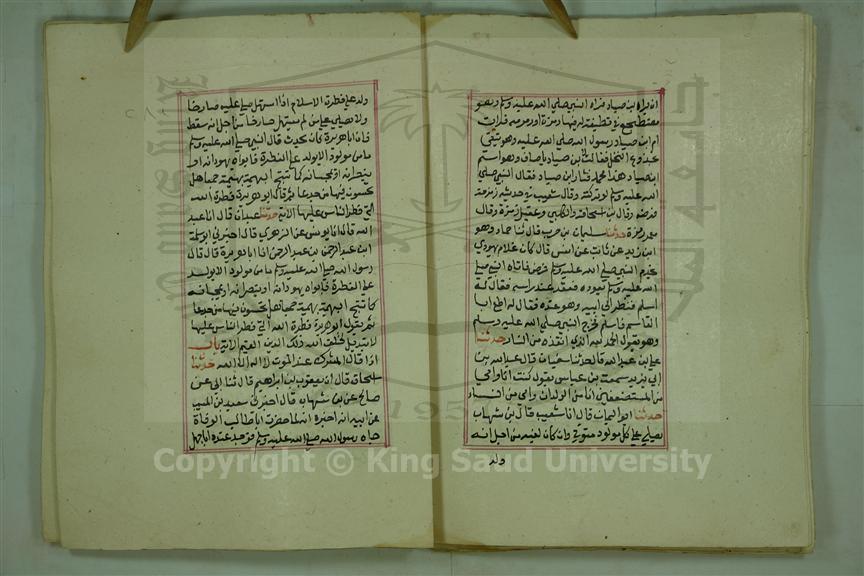 ان يراه ابن صياد فرآه النبي صلى الله عليه وسلم وهو
مضطجع في قطيفة له فيها رمزة او زمرة فرات
ام ابن صياد رسول الله صلى الله عليه وهو يتقي
بجذوع النخل فقالت لابن صياد يا صاف وهو اسم
ابن صياد هذا محمد فثار ابن صياد فقال النبي صلى
الله عليه وسلم لو تركته وقال شعيب في حديثه زمزمة
فرفضه وقال اسحاق والكلبي وعقيل رمرة وقال
معمر رمزة حدثنا سليمان بن حرب قال ثنا حماد وهو
ابن زيد عن ثابت عن انس قال كان غلام يهودي
يخدم النبي صلى الله عليه وسلم فمرض فاتاه النبي صلى
الله عليه وسلم يعوده فقعد عند راسه فقال له
اسلم فنظر الى ابيه وهو عنده فقال له اطع ابا
القاسم فاسلم فخرج النبي صلى الله عليه وسلم
وهو يقول الحمد لله الذي انقذه من النار حدثنا
علي بن عبد الله قال حدثنا سفيان قال عبيد الله بن
ابي يزيد سمعت بن عباس يقول كنت انا وامي
من المستضعفين انا من الولدان وامي من النساء
حدثنا ابو اليمان قال انا شعيب قال بن شهاب
يصلي على كل مولود متوفى وان كان لغية من اجل انه
ولد
ولد على فطرة الاسلام اذا استهل صلي عليه صارخا
ولا يصلي على من لم يستهل صارخا من اجل انه سقط
فان ابا هريرة كان يحدث قال النبي صلى الله عليه وسلم
ما من مولود الا يولد على الفطرة فابواه يهودانه او
ينصرانه او يمجسانه كما تنتج البهيمة بهيمة جمعاء هل
تحسون فيها من جدعا ثم قال ابو هريرة فطرة الله
التي فطر الناس عليها الاية حدثنا عبدان قال انا عبد
الله قال انا يونس عن الزهري قال اخبرني ابو سلمة
ابن عبد الرحمن بن عبد الرحمن ان ابا هريرة قال قال
رسول الله صلى الله عليه وسلم ما من مولود الا يولد
على الفطرة فابواه يهودانه او ينصرانه او يمجسانه
كما تنتج البهيمة بهيمة جمعاء هل تحسون فيها من جدعا
ثم يقول ابو هريرة فطرة الله التي فطر الناس عليها
لا تبديل لخلق الله ذلك الدين القيم الاية باب
اذا قال المشرك عند الموت لا اله الا الله حدثنا
اسحاق قال انا يعقوب بن ابراهيم قال ثنا ابي عن
صالح عن بن شهاب قال اخبرني سعيد بن المسيب
عن ابيه انه اخبره انه لما حضرت ابا طالب الوفاة
جاه رسول الله صلى الله عليه وسلم فوجد عنده ابا جهل
1957
Copyright © King Saud University